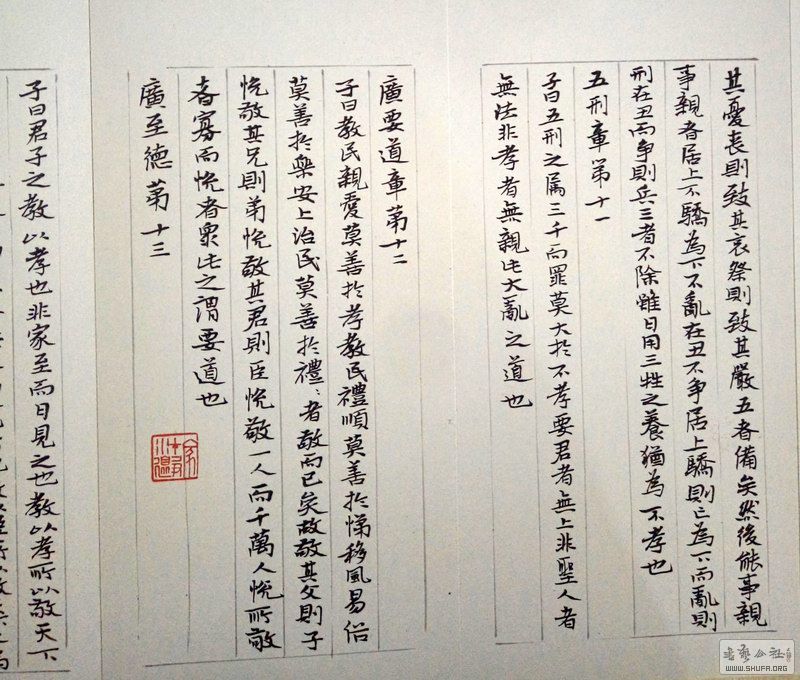 其憂喪則致其哀祭則致其嚴五者備矣然後能事親
事親者居上不驕為下不亂在丑不争居上驕則亡為下而亂則
刑在丑而争則兵三者不除雖日用三牲之養猶為不孝也
五刑章第十一
子曰五刑之属三千而罪莫大於不孝要君者無上非聖人者
無法非孝者無親此大亂之道也
廣要道章第十二
子曰教民親愛莫善於孝教民禮順莫善於悌移風易俗
莫善於樂安上治民莫善於禮〻者敬而已矣故敬其父則子
悅敬其兄則弟悅敬其君則臣悅敬一人而千萬人悅所敬
者寡而悅者眾此之謂要道也
廣至德第十三
子曰君子之教以孝也非家至而日見之也教以孝所以敬天下
書藝公社
WWW.SHUFA.ORG